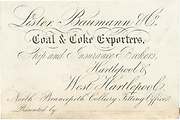 Lister Baumann & Co.
Coal & Coke Exporters,
Ship and Insurance Brokers,
Hartlepool &
West Hartlepool.
North Brancepeth Colliery Fitting Offices
Presented by